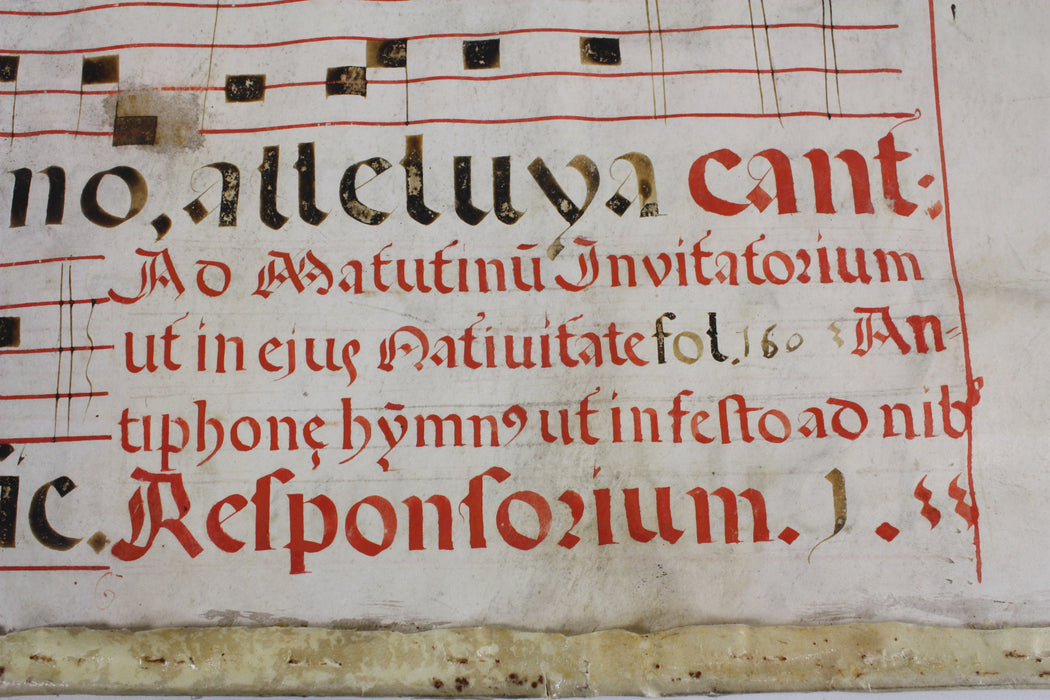 no, alleluya cant:
Ad Matutinū Invitatorium
ut in ejus Nativitate fol. 160 An-
tiphonę hȳmnꝯ ut in festo ad nib
ic. Responsorium. 1.